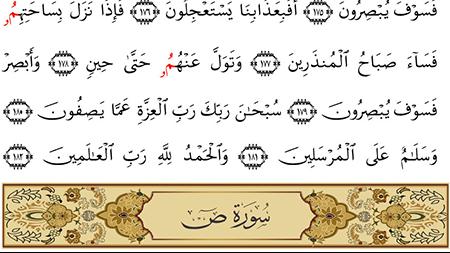 فَسَوْفَ يُبْصِرُونَ ﴿١٧٥﴾ أَفَبِعَذَابِنَا يَسْتَعْجِلُونَ ﴿١٧٦﴾ فَإِذَا نَزَلَ بِسَاحَتِهِمُۥ
فَسَآءَ صَبَاحُ الْمُنذَرِينَ ﴿١٧٧﴾ وَتَوَلَّ عَنْهُمُۥ حَتَّىٰ حِينٍ ﴿١٧٨﴾ وَأَبْصِرْ
فَسَوْفَ يُبْصِرُونَ ﴿١٧٩﴾ سُبْحَـٰنَ رَبِّكَ رَبِّ الْعِزَّةِ عَمَّا يَصِفُونَ ﴿١٨٠﴾
وَسَلَـٰمٌ عَلَى الْمُرْسَلِينَ ﴿١٨١﴾ وَالْحَمْدُ لِلَّهِ رَبِّ الْعَـٰلَمِينَ ﴿١٨٢﴾
سُورَةُ صٓ